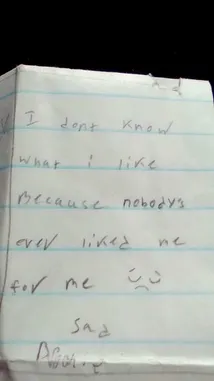 I dont know
what i like
Because nobodys
ever liked me
for me
sad